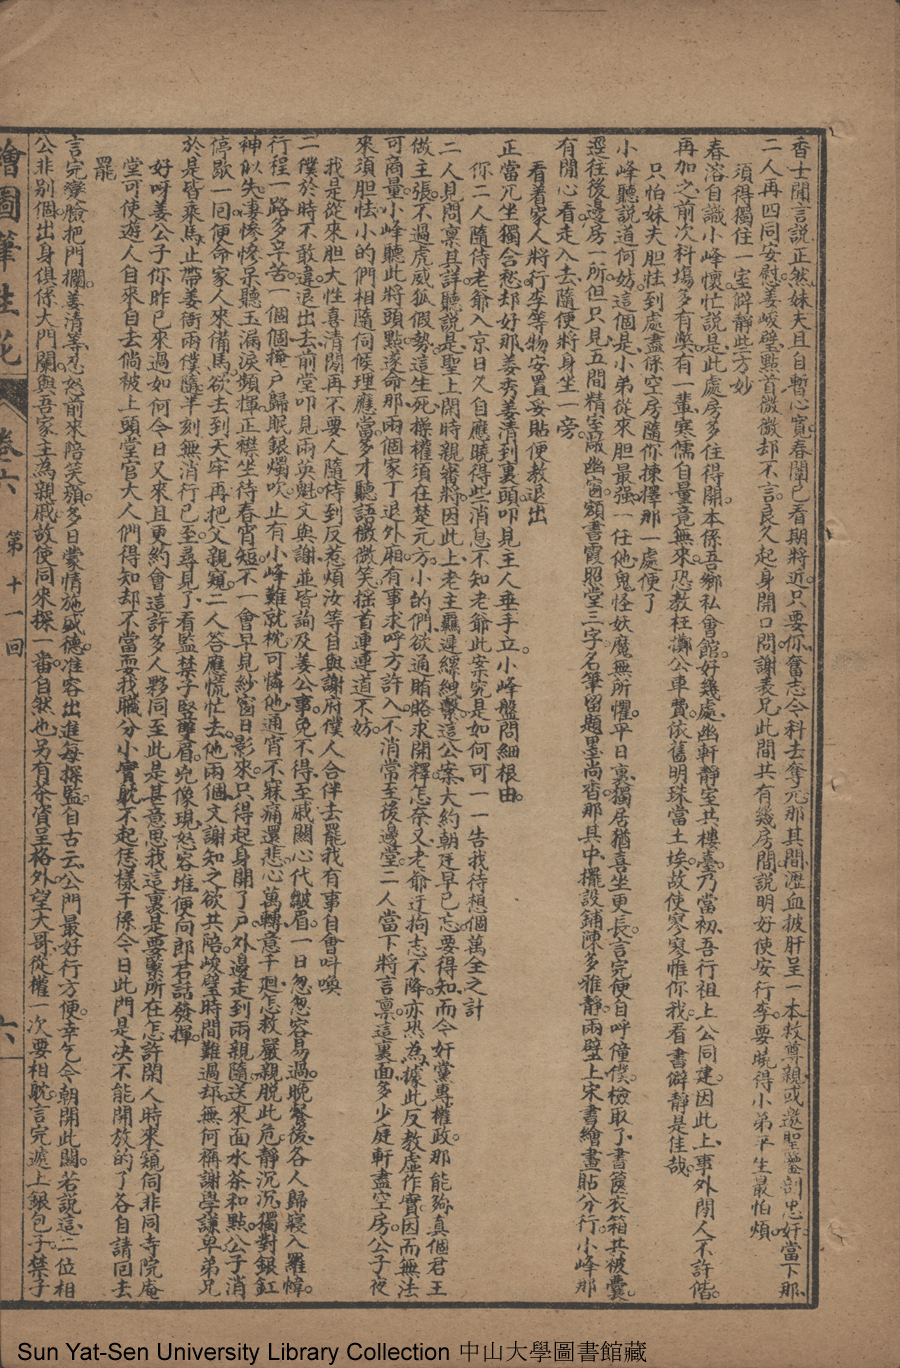 香士聞言說正然妹夫且自暫心寬春闈已看期將近只要你奮志今科去奪元那其間瀝血披肝呈一本救尊親或邀聖鑒剖忠奸當下那
二人再四同安慰姜峻壁點首微微却不言良久起身開口問謝表兄此間共有幾房間說明好使安行李要曉得小弟平生最怕煩
須得獨住一室僻靜些方妙
春溶自識小峰懷忙說是此處房多住得開本係吾鄉私會館好幾處幽軒靜室共樓臺乃當初吾行祖上公同建因此上事外閒人不許偕
再加之前次科塲多有爽有一輩寒儒自量竟無來恐教枉擲公車費依舊明珠當土埃故使寥寥惟你我看書僻靜是佳哉
只怕妹夫胆怯到處盡係空房隨你揀擇那一處便了
小峰聽說道何妨這個是小弟從來胆最强一任他鬼怪妖魔無所懼平日裏獨居猶喜坐更長言完便自呼僮僕檢取了書篋衣箱共被囊
逕往後邊房一所但只見五間精室嵗幽窗額書霞照堂三字名筆留題墨尚香那其中擺設鋪陳多雅靜兩壁上宋書繪畫貼分行小峰那
有閒心看走入去隨便將身坐一旁
看着家人將行李等物安置妥貼便教退出
正當兀坐獨含愁却好那姜秀姜清到裏頭叩見王人垂手立小峰盤問細根由
你二人隨侍老爺入京日久自應曉得些消息不知老爺此案究是如何可一一告我待想個萬全之計
二人見問禀其詳聽說是聖上閑時親審將因此上老主羈遲縲絏繫這公案大約朝廷早已忘要得知而今奸黨專權政那能夠真個君王
做主張不過虎威狐假勢這生死操權須在楚元方小的們欲通賄賂求開釋怎奈又老爺迂拘志不降亦恐為據此反教虛作實因而無法
可商量小峰聽此將頭點遂命那兩個家丁退外廂有事求呼方許入不消常至後邊堂二人當下將言禀這裏面多少庭軒盡空房公子夜
來須胆怯小的們相隨伺候理應當多才聽語微微笑搖首連連道不妨
我是從來胆大性喜清閒再不要人隨侍到反惹煩汝等自與謝府僕人合伴去罷我有事自會叫喚
二僕於時不敢違退出去前堂叩見兩英魁文與謝並皆詢及姜公事免不得至戚關心代皺眉一日怱怱容易過晚餐後各人歸寢入羅幃
行程一路多辛苦一個個掩戶歸眠銀燭吹止有小峰難就枕可憐他通宵不寐痛還悲心萬轉意千廻怎救嚴親脫此危靜沉沉獨對銀釭
神似失凄慘慘呆聽玉漏淚頻揮正襟坐待春宵短不一會早見紗窗日影來只得起身開了戶外邊走到兩親隨送來面水茶和點公子消
停歇一回便命家人來備馬欲去到天牢再把父親窺二人答應慌忙去他兩個文謝知之欲共陪峻壁時間難過却無何稱謝學謙卑弟兄
於是皆乘馬止帶姜衙兩僕隨半刻無消行已至尋見了看監禁子竪雙眉兇像現怒容堆便向郎君話發揮
好呀姜公子你昨已來過如何今日又來且更約會這許多人夥同至此是甚意思我這裏是要緊所在怎許閒人時來窺伺非同寺院庵
堂可使遊人自來自去倘被上頭堂官大人們得知却不當耍我職分小實躭不起恁樣干係今日此門是决不能開放的了各自請回去
罷
言完變臉把門攔姜清等忍怒前來陪笑顏多日蒙情施盛德准容出進每探監自古云公門最好行方便幸乞今朝開此關若說這二位相
公非别個出身俱係大門闌與吾家主為親戚故使同來探一番自然也另有茶資呈格外望大哥從權一次要相躭言完遞上銀包子禁子
繪圖筆生花
卷六
第十一回
六
Sun Yat-Sen University Library Collection 中山大學圖書館藏